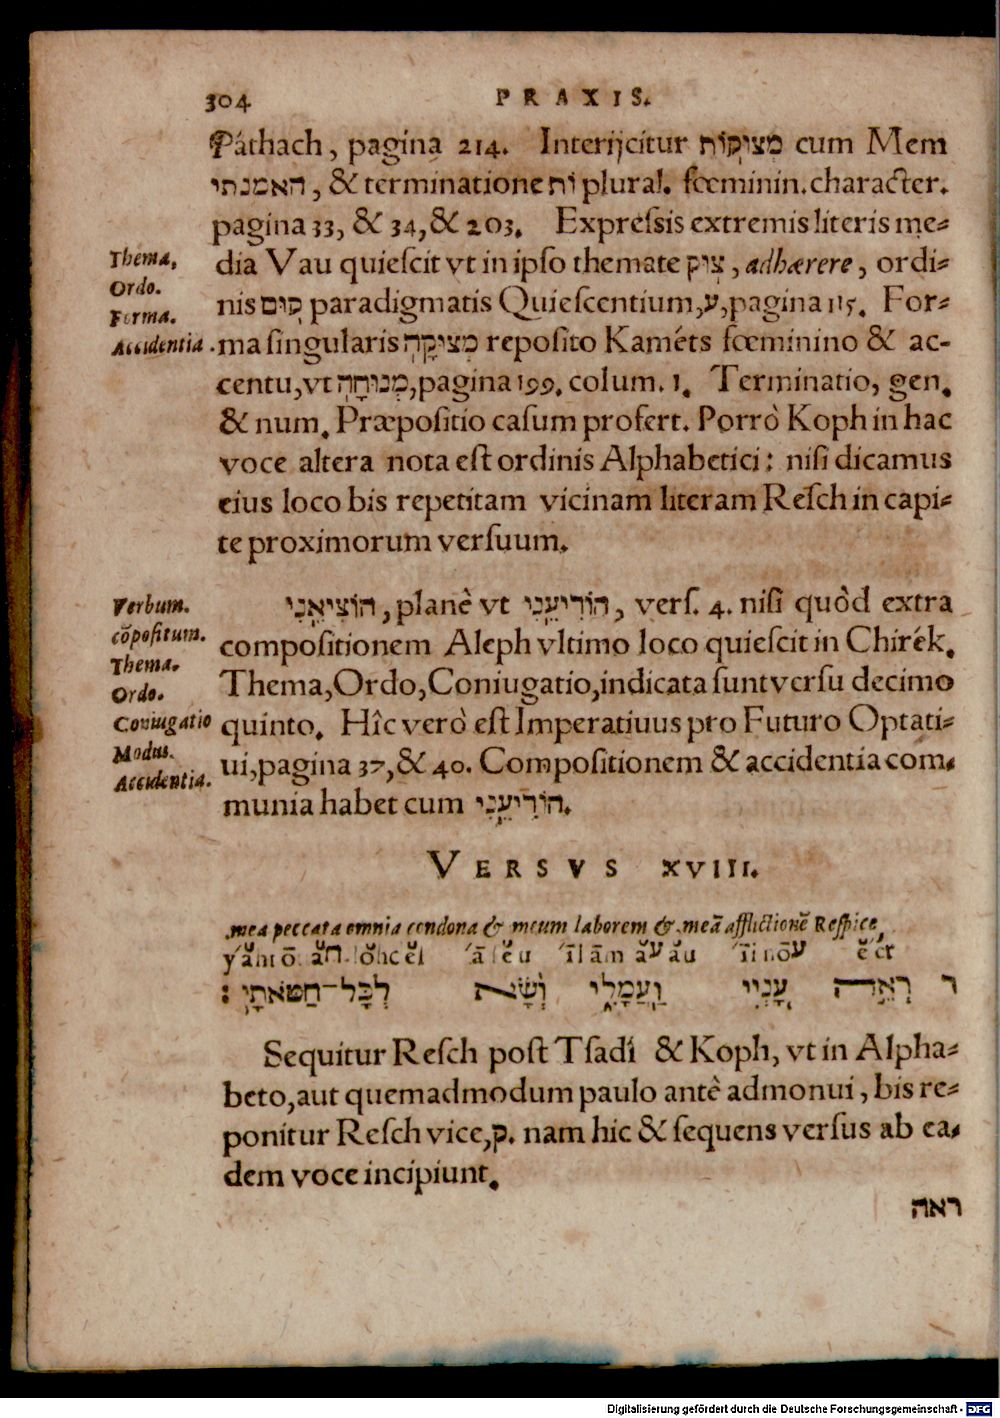 304 PRAXIS.
Páthach, pagina 214. Interijcitur מְצוּקוֹת cum Mem
האמנתי, & terminatione וֹת plural. fœminin. character.
pagina 33, & 34, & 203. Expreſsis extremis literis me-
Thema,
dia Vau quieſcit vt in ipſo themate צוּק, adhærere, ordi-
Ordo.
nis קוּם paradigmatis Quieſcentium, ע, pagina 115. For-
Forma.
Accidentia.
ma ſingularis מְצוּקָה repoſito Kaméts fœminino & ac-
centu, vt מְנוּחָה, pagina 199. colum. 1. Terminatio, gen.
& num. Præpoſitio caſum profert. Porrò Koph in hac
voce altera nota eſt ordinis Alphabetici: niſi dicamus
eius loco bis repetitam vicinam literam Reſch in capi-
te proximorum verſuum.
Verbum.
הוֹצִיאֵנִי, planè vt הוֹדִיעֵנִי, verſ. 4. niſi quòd extra
cõpoſitum.
compoſitionem Aleph vltimo loco quieſcit in Chirék.
Thema.
Ordo.
Thema, Ordo, Coniugatio, indicata ſunt verſu decimo
Coniugatio
quinto. Hîc verò eſt Imperatiuus pro Futuro Optati-
Modus.
ui, pagina 37, & 40. Compoſitionem & accidentia com-
Accidentia.
munia habet cum הוֹדִיעֵנִי.
VERSVS XVIII.
mea peccata omnia condona & meum laborem & meã afflictionẽ Reſpice,
רְאֵה עָנְיִי וַעֲמָלִי וְשָׂא לְכָל־חַטֹּאתָי: ר
Sequitur Reſch poſt Tſadí & Koph, vt in Alpha-
beto, aut quemadmodum paulo antè admonui, bis re-
ponitur Reſch vice, ק. nam hic & ſequens verſus ab ea-
dem voce incipiunt.
ראה
Digitalisierung gefördert durch die Deutsche Forschungsgemeinschaft - DFG